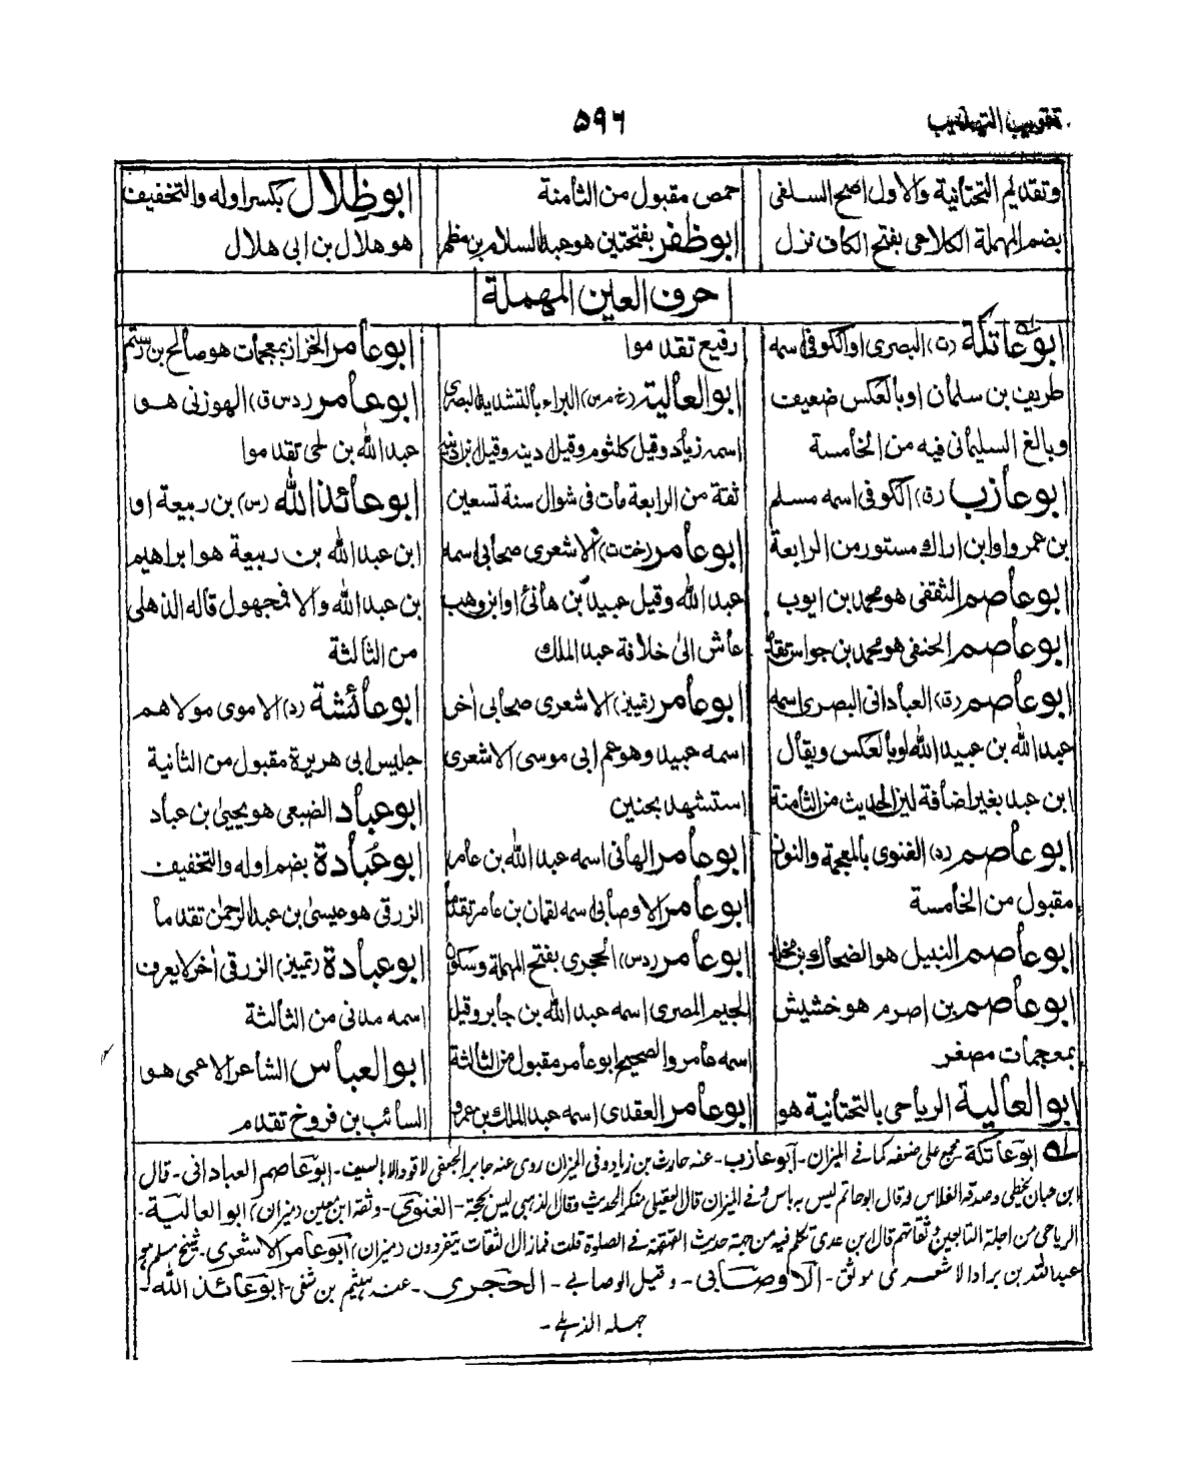 تقريب التهذيب
٥٩٦
وتقديم التحتانية والاول اصح السلفى
بضم المهملة الكلاعى بفتح الكاف نزل
حمص مقبول من الثامنة
ابوظفر بفتحتين هو عبد السلام بن مطهر
ابوظِلال بكسر اوله والتخفيف
هو هلال بن ابى هلال
حرف العين المهملة
ابوعاتكة (ت) البصرى او الكوفى اسمه
طريف بن سلمان او بالعكس ضعيف
وبالغ السليمانى فيه من الخامسة
ابوعازب (ق) الكوفى اسمه مسلم
بن عمرو او ابن اراك مستور من الرابعة
ابوعاصم الثقفى هو محمد بن ايوب
ابوعاصم الحنفى هو محمد بن جواس تقدما
ابوعاصم (ق) العبادانى البصرى اسمه
عبد الله بن عبيد الله او بالعكس ويقال
ابن عبد بغير اضافة لين الحديث من الثامنة
ابوعاصم (ه) الغنوى بالمعجمة والنون
مقبول من الخامسة
ابوعاصم النبيل هو الضحاك بن مخلد
ابوعاصم بن اصرم هو خشيش
بمعجمات مصغر
ابوالعالية الرياحى بالتحتانية هو
رفيع تقدموا
ابوالعالية (خ م س) البراء بالتشديد البصرى
اسمه زياد وقيل كلثوم وقيل اذينة وقيل ابن اذينة
ثقة من الرابعة مات فى شوال سنة تسعين
ابوعامر (خت ت) الاشعرى صحابى اسمه
عبد الله وقيل عبيد بن هانئ او ابن وهب
عاش الى خلافة عبد الملك
ابوعامر (تمييز) الاشعرى صحابى اٰخر
اسمه عبيد وهو عم ابى موسى الاشعرى
استشهد بحنين
ابوعامر الهانى اسمه عبد الله بن عامر
ابوعامر الاوصابى اسمه لقمان بن عامر تقدما
ابوعامر (د س) الحجرى بفتح المهملة وسكون
الجيم المصرى اسمه عبد الله بن جابر وقيل
اسمه عامر والصحيح ابوعامر مقبول من الثالثة
ابوعامر العقدى اسمه عبد الملك بن عمرو
ابوعامر الخزاز بمعجمات هو صالح بن رستم
ابوعامر (د س ق) الهوزنى هو
عبد الله بن لحى تقدموا
ابوعائذ الله (س) بن ربيعة او
ابن عبد الله بن ربيعة هو ابراهيم
بن عبد الله والا فمجهول قاله الذهلى
من الثالثة
ابوعائشة (د) الاموى مولاهم
جليس ابى هريرة مقبول من الثانية
ابوعباد الضبعى هو يحيىٰ بن عباد
ابوعُبادة بضم اوله والتخفيف
الزرقى هو عيسىٰ بن عبد الرحمٰن تقدما
ابوعبادة (تمييز) الزرقى اٰخر لا يعرف
اسمه مدنى من الثالثة
ابوالعباس الشاعر الاعمى هو
السائب بن فروخ تقدم
لـه ابوعاتكة مجمع على ضعفه كما فى الميزان - ابوعازب - عنه حارث بن زياد وفى الميزان روى عنه جابر الجعفى لا قود الا بالسيف - ابوعاصم العبادانى - قال
ابن حبان يخطى وصدقه الفلاس وقال ابوحاتم ليس به باس وفى الميزان قال العقيلى منكر الحديث وقال الذهبى ليس بحجة - الغنوى - وثقه ابن معين (ميزان) ابوالعالية -
الرياحى من اجلة التابعين وثقاتهم قال ابن عدى تكلم فيه من جهة حديث القهقهة فى الصلوة قلت فما زال الثقات يتفردون (ميزان) ابوعامر الاشعرى - شيخ مسلم هو
عبد الله بن براد الاشعرى موثق - الاوصابى - وقيل الوصابى - الحجرى - عنه هيثم بن شفى - ابوعائذ الله -
جهله الذهلى -